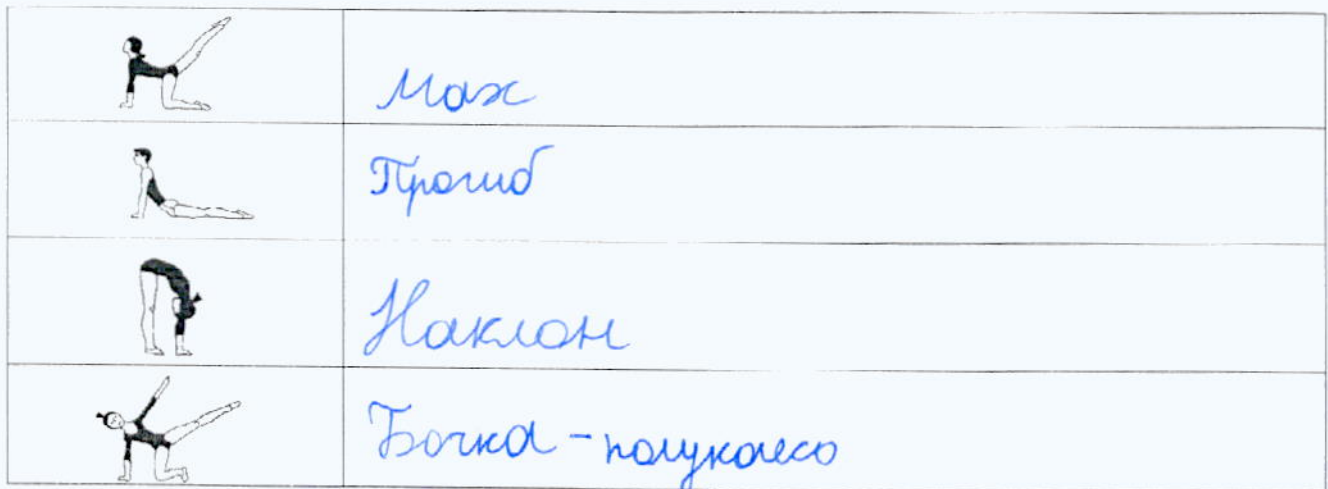 Мах
Прогиб
Наклон
Бочка - полуколесо